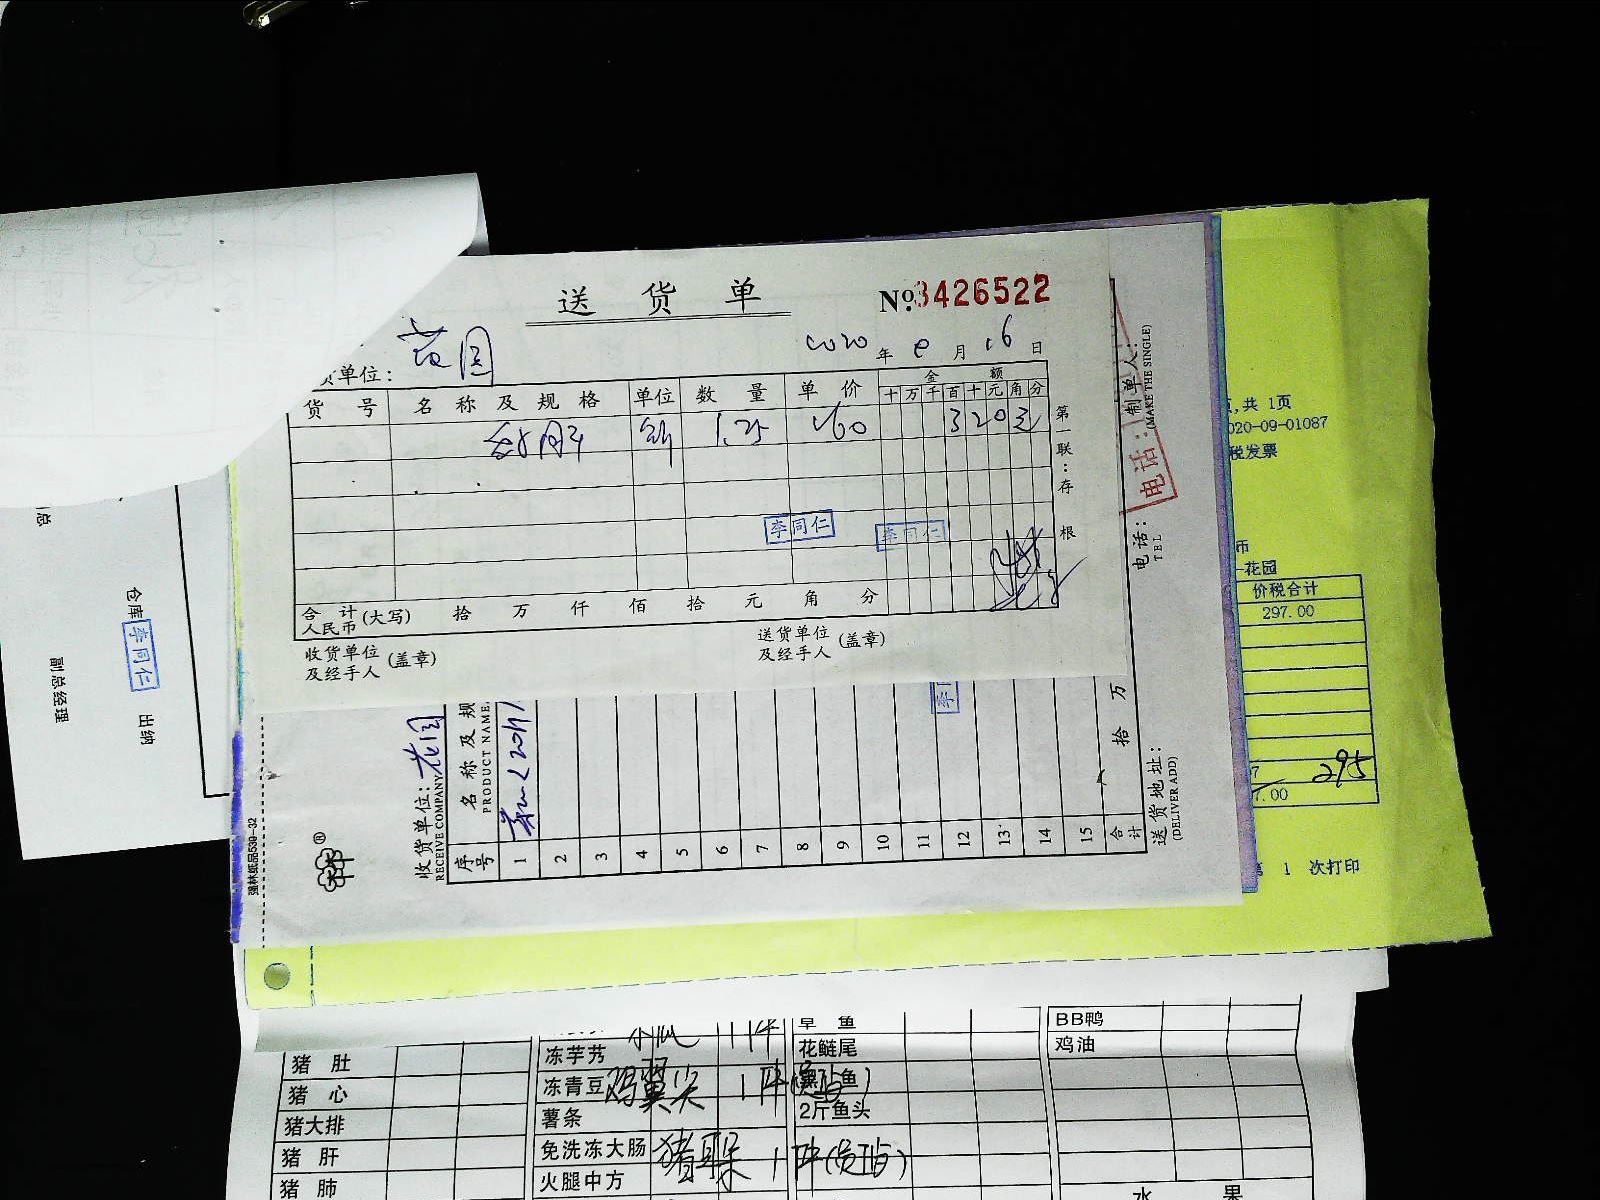 送 货 单
No.3426522
花园
货单位:
2020 年 月 16 日
货 号 名 称 及 规 格 单位 数 量 单 价 金 额
十 万 千 百 十 元 角 分
1.25 320元
第一联:存根
李同仁 李同仁
合 计 (大写) 拾 万 仟 佰 拾 元 角 分
人民币
收货单位 (盖章)
及经手人
送货单位 (盖章)
及经手人
制单人:
(MAKE THE SINGLE)
电话:
电话:
TEL
送货地址:
(DELIVER ADD)
拾 万
收货单位: 花园
RECEIVE COMPANY
序号 名 称 及 规
PRODUCT NAME
1
2
3
4
5
6
7
8
9
10
11
12
13
14
15
合计
强林纸品539-32
仓库 李同仁 出纳
副总经理
页,共 1页
020-09-01087
税发票
币
-花园
价税合计
297.00
295
7.00
1 次打印
猪 肚
猪 心
猪大排
猪 肝
猪 肺
冻芋艿
冻青豆 鸡翼尖 1件
薯条
免洗冻大肠
火腿中方
草 鱼
花鲢尾
2斤鱼头
BB鸭
鸡油
水 果